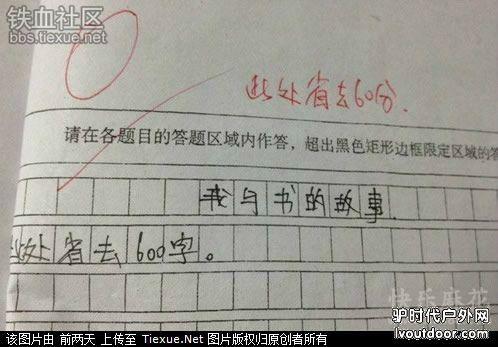 铁血社区
bbs.tiexue.net
此处省去60分.
请在各题目的答题区域内作答，超出黑色矩形边框限定区域的答
我与书的故事.
此处省去600字。
快乐麻花
驴时代户外网
lvoutdoor.com
该图片由 前两天 上传至 Tiexue.Net 图片版权归原创者所有